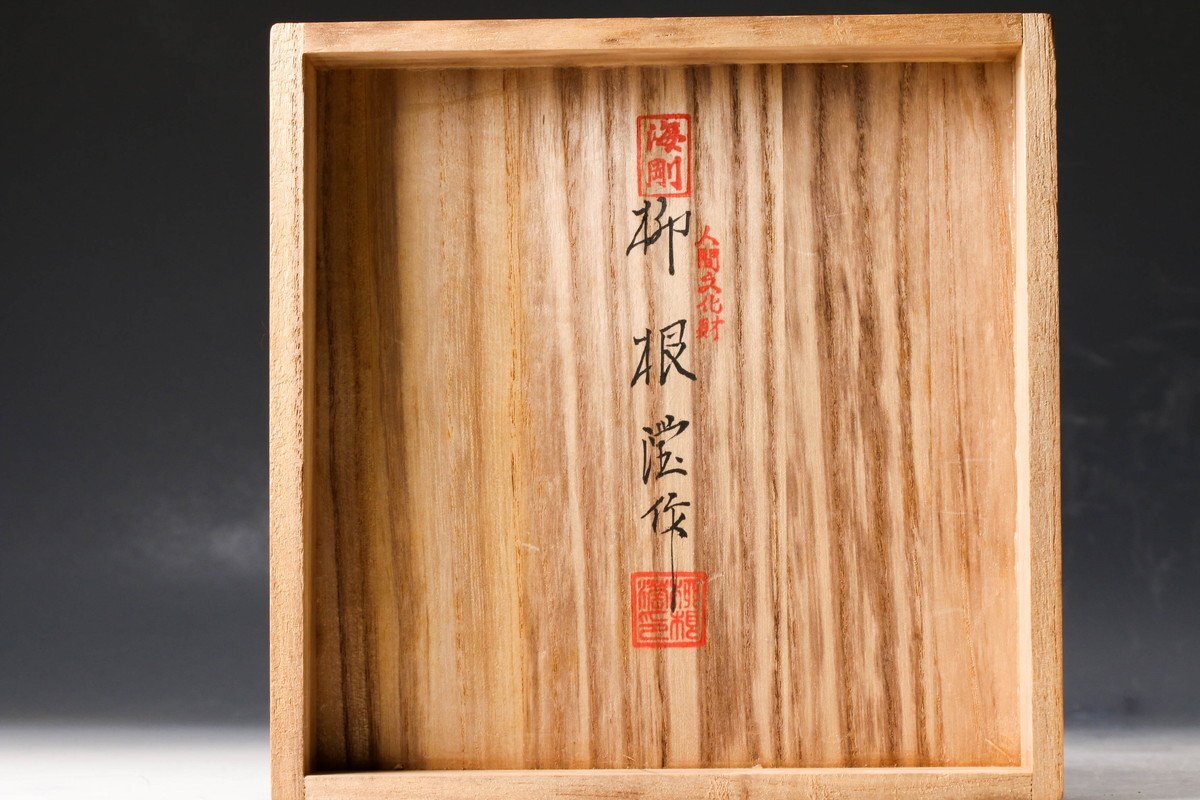 海剛
人間文化財
柳根瀅作
柳根瀅印